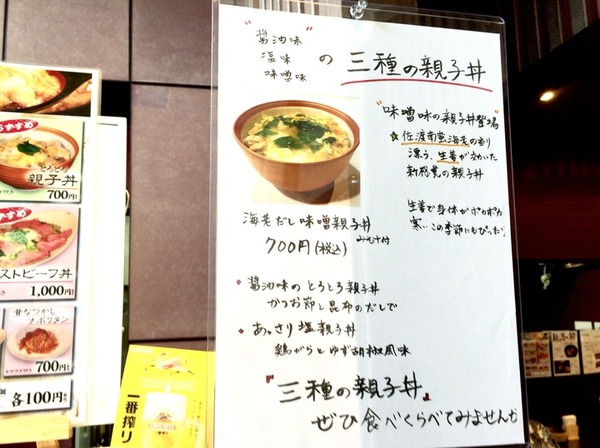 "醤油味"
塩味
味噌味
の 三種の親子丼
"味噌味の親子丼登場"
☆佐渡南蛮海老の香り
漂う、生姜が効いた
新感覚の親子丼
生姜で身体がポカポカ
寒いこの季節にもぴったり
海老だし味噌親子丼
700円(税込) みそ汁付
醤油味の とろとろ親子丼
かつお節と昆布のだしで
あっさり塩親子丼
鶏がらとゆず胡椒風味
『三種の親子丼』
ぜひ食べくらべてみませんか
すすめ
とろとろ
親子丼
700円
すめ
ストビーフ丼
1,000円
昔なつかし
ナポリタン
700円
各100円
一番搾り